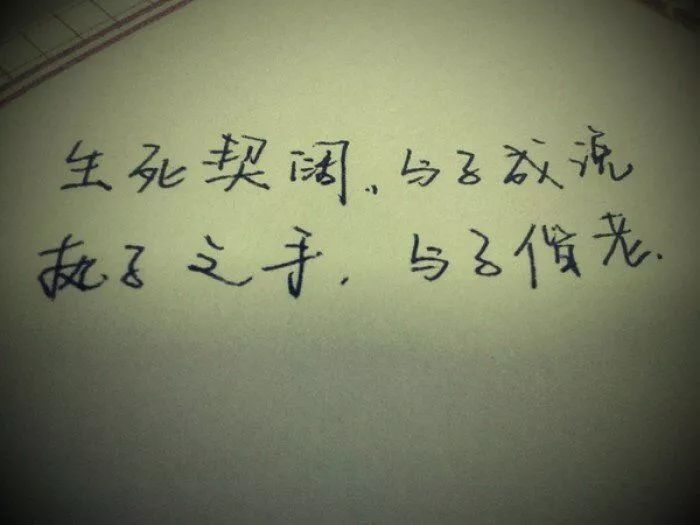 生死契阔、与子成说
执子之手,与子偕老.